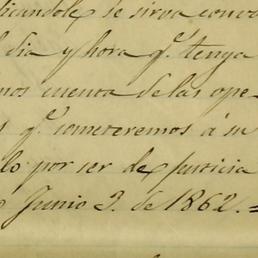 icandole se sirva convo
l dia y hora q.e tenga
mos cuenta de las ope
s q.e someteremos á su
lo por ser de justicia
o Junio 3. de 1862.=